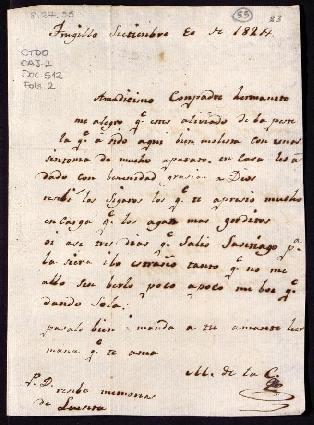 8.24.53
55
23
CTDO
OAJ-2
Doc 512
Fols. 2
Trugillo Setiembre 20 de 1824
Amadisimo Compadre hermanito
me alegro q.e estes aliviado de la peste
la q.e á sido aqui bien molesta con unos
sintomas de mucho aparato, en Casa les á
dado con benenidad grasias a Dios
resebí los sigaros los q.e te apresio mucho
encarga q.e los agan mas gorditos
oi ase tres dias q.e Salio Santiago p.a
la siera i lo estraño tanto q.e no me
allo sin berlo poco apoco me boi q.e
dando Sola.
pasalo bien i manda a tu amante her
mana q.e te ama
M. de la C.
P. D. resibe memorias
de